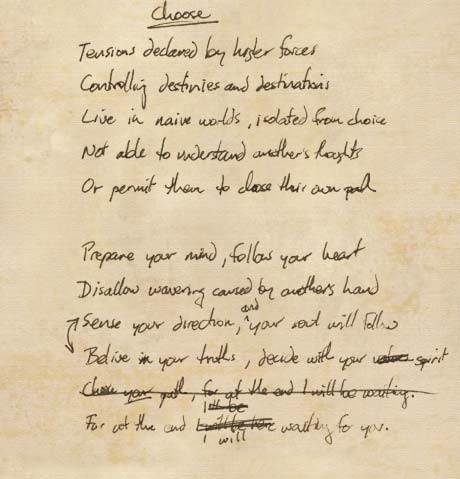 Choose
Tensions declared by higher forces
Controlling destinies and destinations
Live in naive worlds, isolated from choice
Not able to understand another's thoughts
Or permit them to choose their own path
Prepare your mind, follow your heart
Disallow wavering caused by anothers hand
and
Sense your direction, your soul will follow
Belive in your truths, decide with your spirit
Choose your path, for at the end I will be waiting.
I'll be
For at the end I will be here waiting for you.
I will